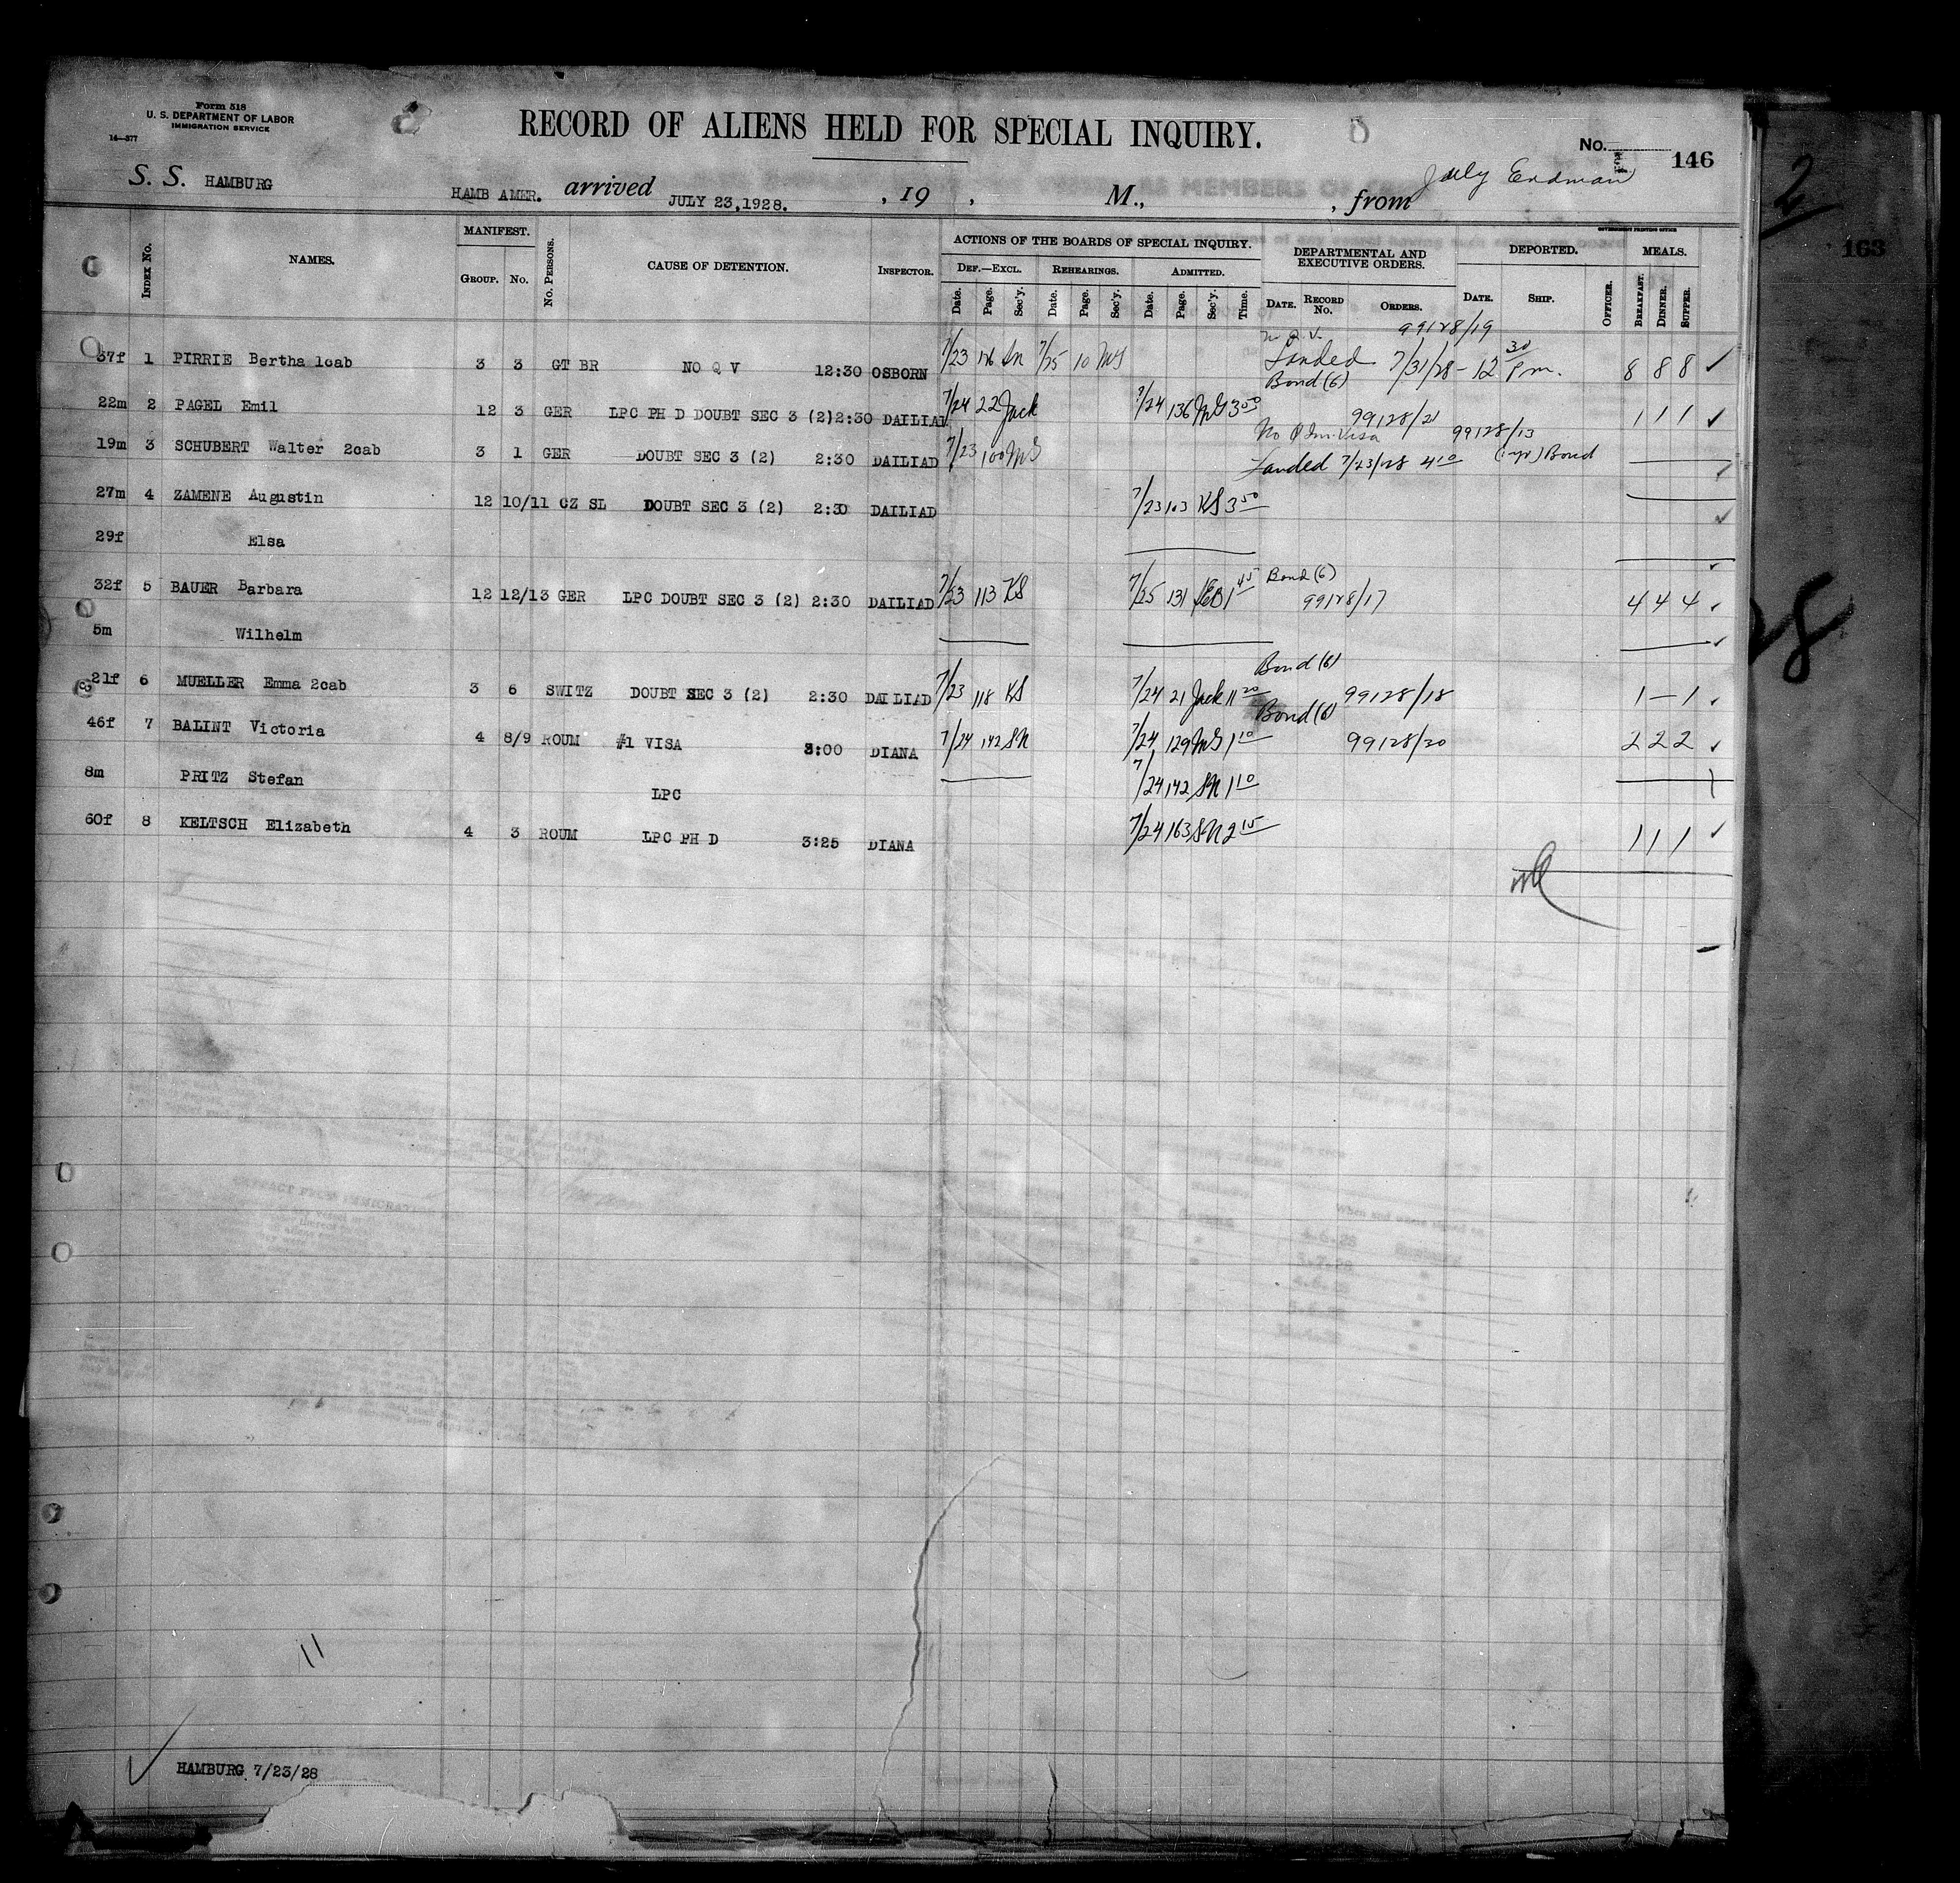 Form 518
U. S. DEPARTMENT OF LABOR
IMMIGRATION SERVICE
14—377
RECORD OF ALIENS HELD FOR SPECIAL INQUIRY.
No. 146
S. S. HAMBURG HAMB AMER. arrived JULY 23,1928. , 19 , M., , from
INDEX No. NAMES. MANIFEST. GROUP. No. No. PERSONS. CAUSE OF DETENTION. INSPECTOR. ACTIONS OF THE BOARDS OF SPECIAL INQUIRY. DEPARTMENTAL AND EXECUTIVE ORDERS. DEPORTED. GOVERNMENT PRINTING OFFICE MEALS.
DEF.—EXCL. REHEARINGS. ADMITTED.
Date. Page. Sec'y. Date. Page. Sec'y. Date. Page. Sec'y. Time. DATE. RECORD No. ORDERS. DATE. SHIP. OFFICER. BREAKFAST. DINNER. SUPPER.
99128/19
37f 1 PIRRIE Bertha 1cab 3 3 GT BR NO Q V 12:30 OSBORN 7/23 7/25 10 MS Landed 7/31/28 - 12 30 Pm. 8 8 8
Bond (6)
22m 2 PAGEL Emil 12 3 GER LPC PH D DOUBT SEC 3 (2) 2:30 DAILIAD 7/24 22 Jack 7/24 136 MS 3 50 99128/21 1 1 1
No Visa 99128/13
19m 3 SCHUBERT Walter 2cab 3 1 GER DOUBT SEC 3 (2) 2:30 DAILIAD 7/23 100 MS Landed 7/23/28 4 10 (1 yr) Bond
27m 4 ZAMENE Augustin 12 10/11 CZ SL DOUBT SEC 3 (2) 2:30 DAILIAD 7/23 103 KS 3 50
29f Elsa
32f 5 BAUER Barbara 12 12/13 GER LPC DOUBT SEC 3 (2) 2:30 DAILIAD 7/23 113 KS 7/25 131 1 45 Bond (6) 99128/17 4 4 4
5m Wilhelm
Bond (6)
21f 6 MUELLER Emma 2cab 3 6 SWITZ DOUBT SEC 3 (2) 2:30 DAILIAD 7/23 118 KS 7/24 21 Jack 11 20 99128/18 1 — 1
Bond (6)
46f 7 BALINT Victoria 4 8/9 ROUM #1 VISA 3:00 DIANA 7/24 142 SN 7/24 129 MS 1 10 99128/20 2 2 2
8m PRITZ Stefan LPC 7/24 142 SN 1 10
60f 8 KELTSCH Elizabeth 4 3 ROUM LPC PH D 3:25 DIANA 7/24 163 SN 2 15 1 1 1
11
HAMBURG 7/23/28
2
163
28